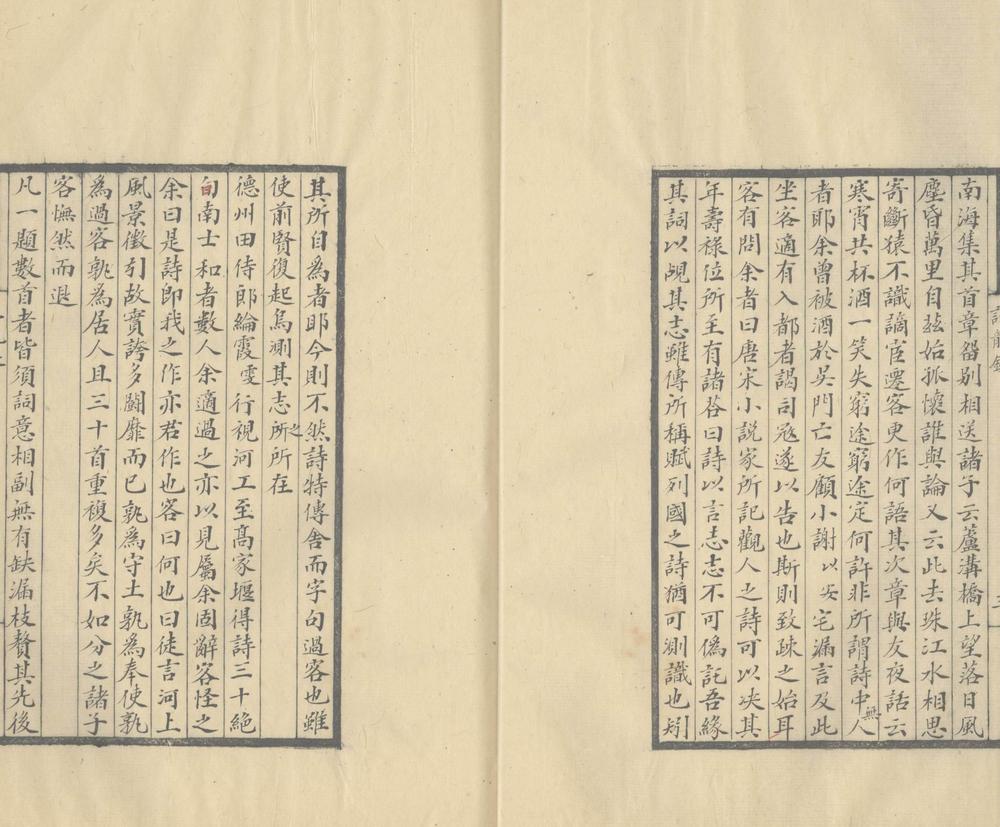 南海集其首章留別相送諸子云蘆溝橋上望落日風
塵昏萬里自茲始孤懷誰與論又云此去珠江水相思
寄斷猿不識謫宦遷客更作何語其次章與友夜話云
寒宵共杯酒一笑失窮途窮途定何許非所謂詩中無人
者耶余曾被酒於吳門亡友顧小謝以安宅漏言及此
坐客適有入都者謁司寇遂以告也斯則致疎之始耳
客有問余者曰唐宋小說家所記觀人之詩可以决其
年壽祿位所至有諸荅曰詩以言志志不可僞託吾緣
其詞以覘其志雖傳所稱賦列國之詩猶可測識也矧
其所自為者耶今則不然詩特傳舍而字句過客也雖
使前賢復起烏測其志之所所在
德州田侍郎綸霞雯行視河工至髙家堰得詩三十絕
句南士和者數人余適過之亦以見屬余固辭客怪之
余曰是詩即我之作亦若作也客曰何也曰徒言河上
風景徵引故實誇多鬬靡而已孰為守土孰為奉使孰
為過客孰為居人且三十首重複多矣不如分之諸子
客憮然而退
凡一題數首者皆須詞意相副無有缺漏枝贅其先後